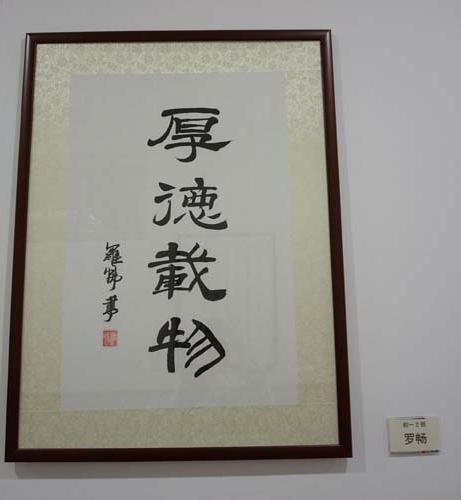 厚德載物
羅暢書
初一2班
罗畅